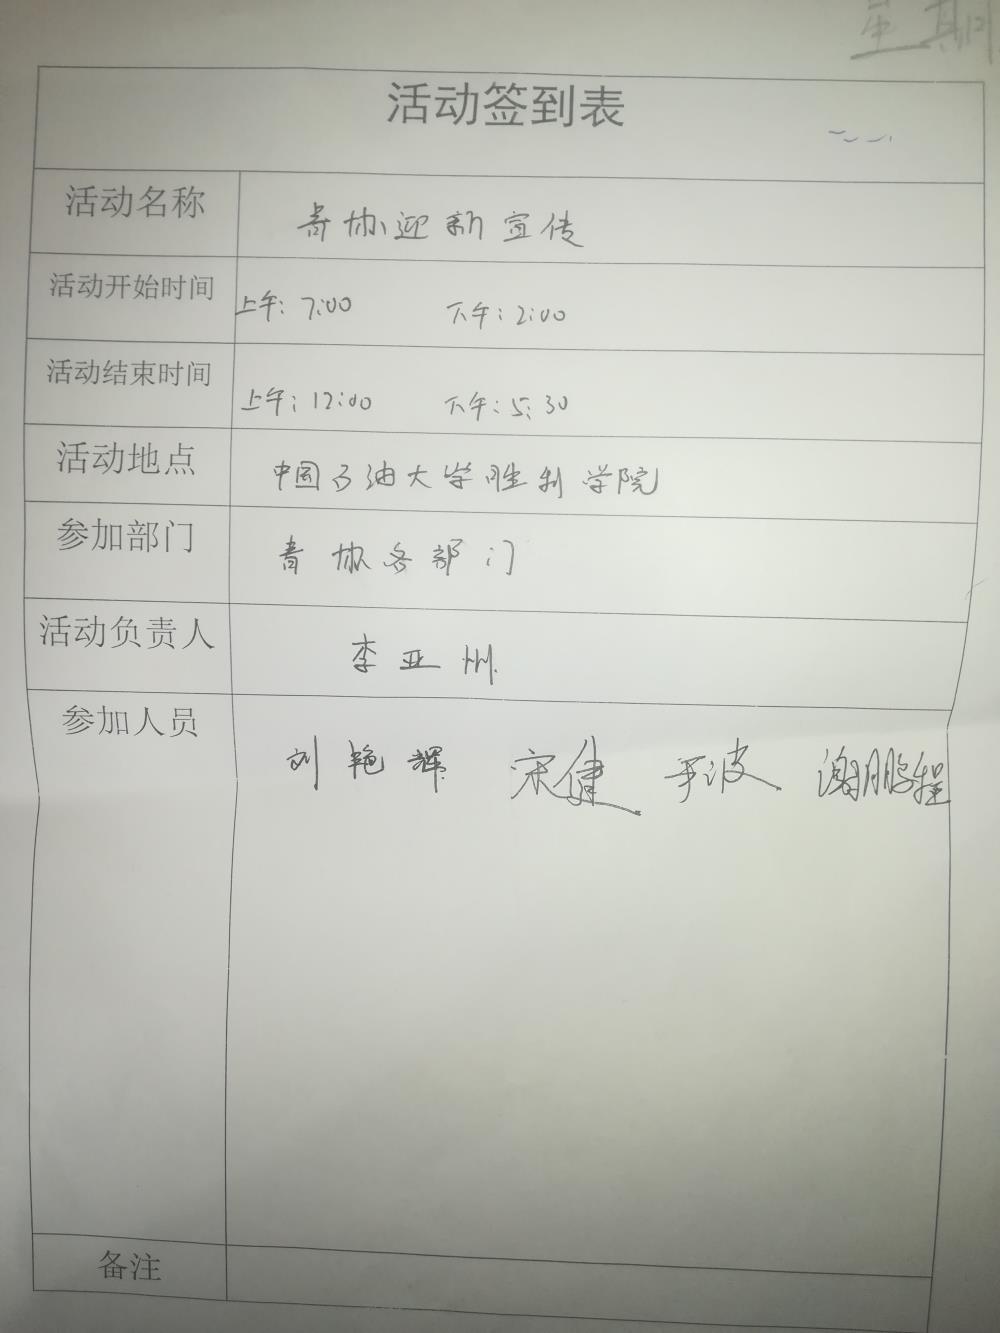 星期四
活动签到表
活动名称 青协迎新宣传
活动开始时间 上午:7:00 下午:2:00
活动结束时间 上午:12:00 下午:5:30
活动地点 中国石油大学胜利学院
参加部门 青协各部门
活动负责人 李亚州
参加人员 刘艳辉 宋健 于波 谢鹏程
备注